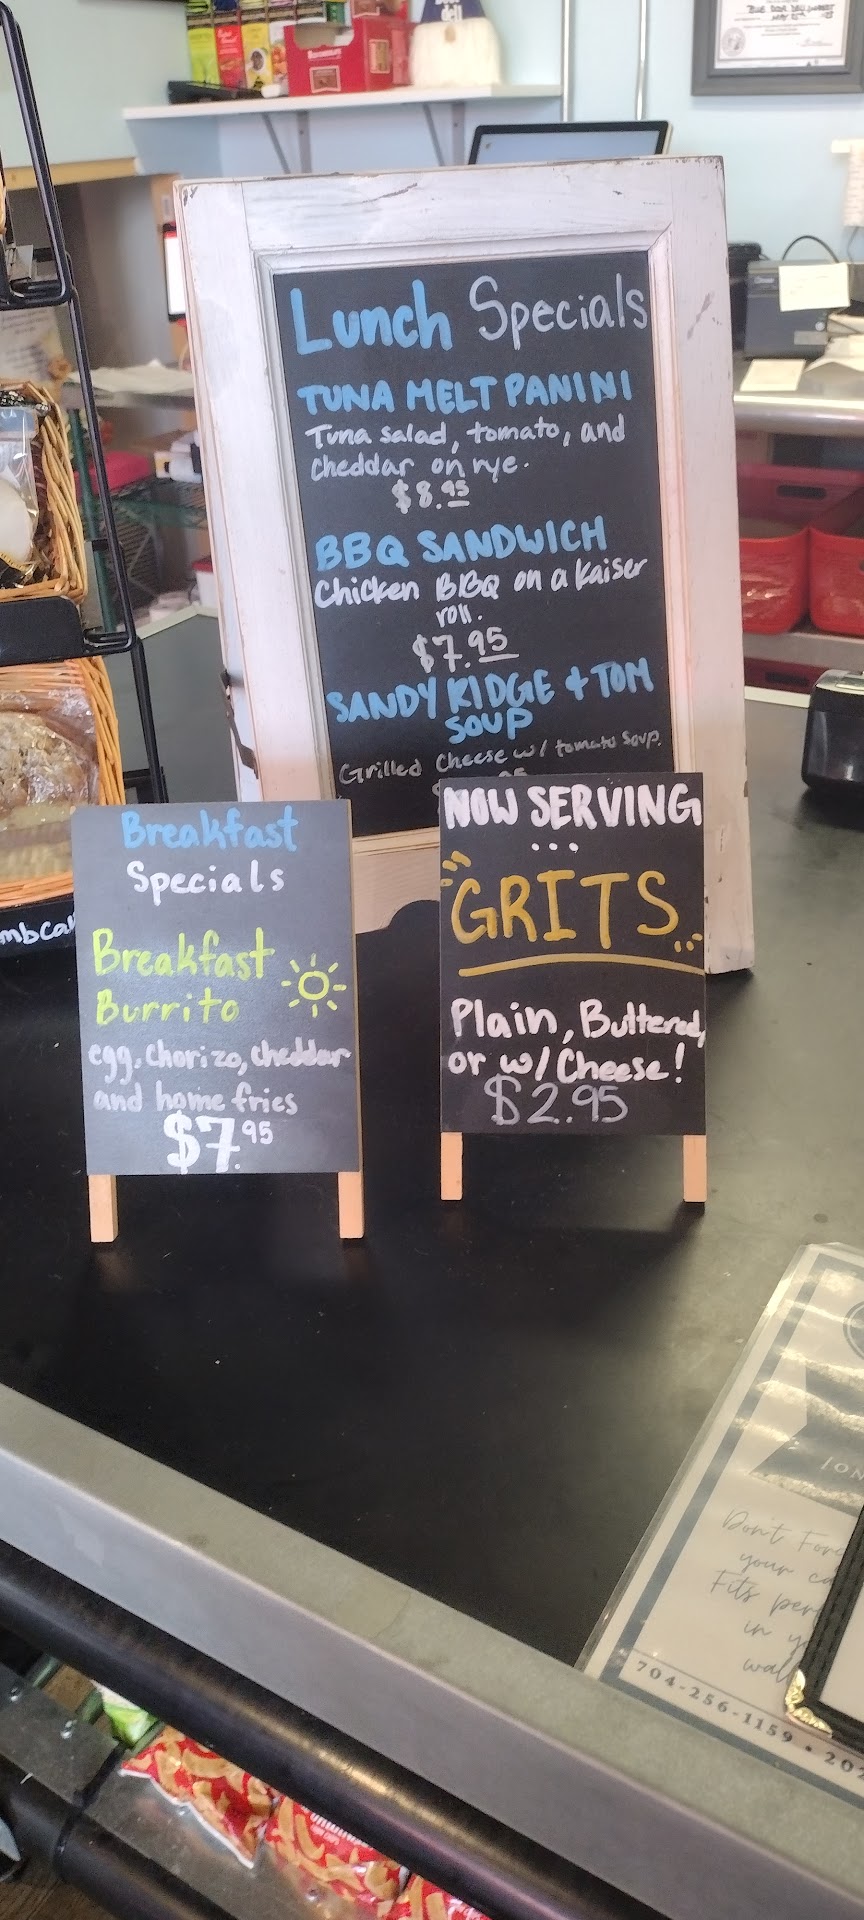 Lunch Specials
TUNA MELT PANINI
Tuna salad, tomato, and
cheddar on rye.
$8.95
BBQ SANDWICH
Chicken BBQ on a Kaiser
roll.
$7.95
SANDY RIDGE + TOM
SOUP
Grilled Cheese w/ tomato soup.
Breakfast
Specials
Breakfast
Burrito
egg, chorizo, cheddar
and home fries
$7.95
NOW SERVING
...
GRITS
Plain, Buttered,
or w/ Cheese!
$2.95
Don't
your
Fits
in
704-256-1159 •